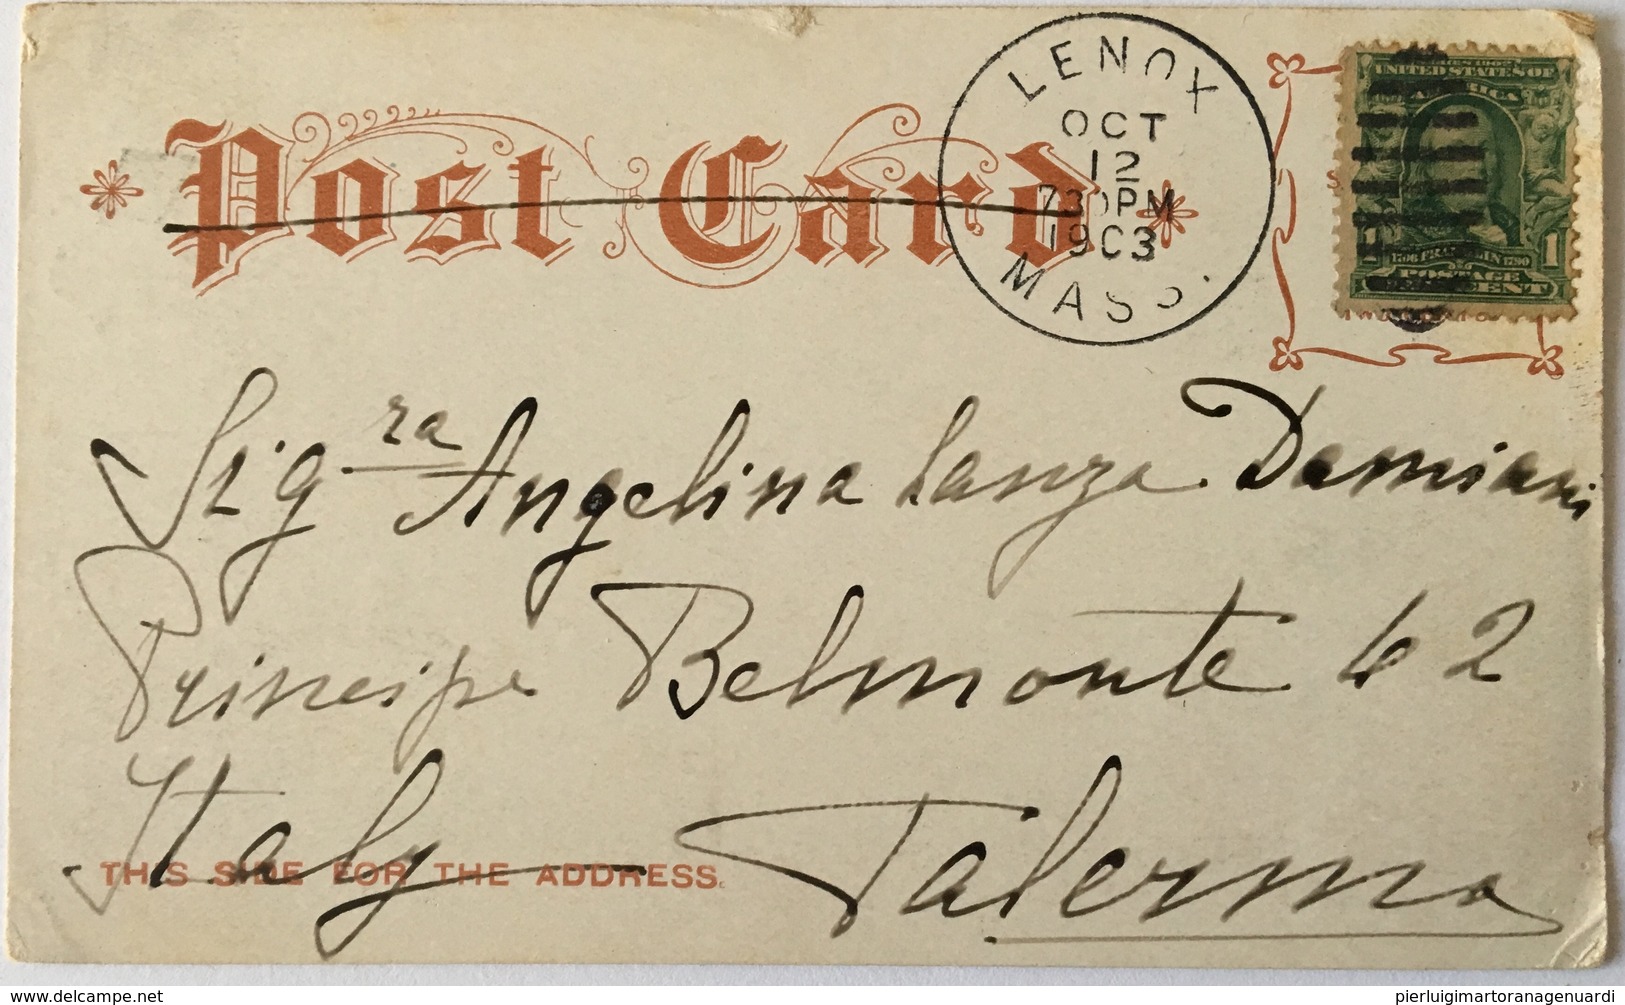 Post Card
LENOX
OCT
12
730PM
1903
MASS.
UNITED STATES OF
AMERICA
1706 FRANKLIN 1790
1 1
POSTAGE
ONE CENT
Sigra Angelina Lanza Damiani
Principe Belmonte
Italy — Palermo
THIS SIDE FOR THE ADDRESS.
pierluigimartoranagenuardi
delcampe.net